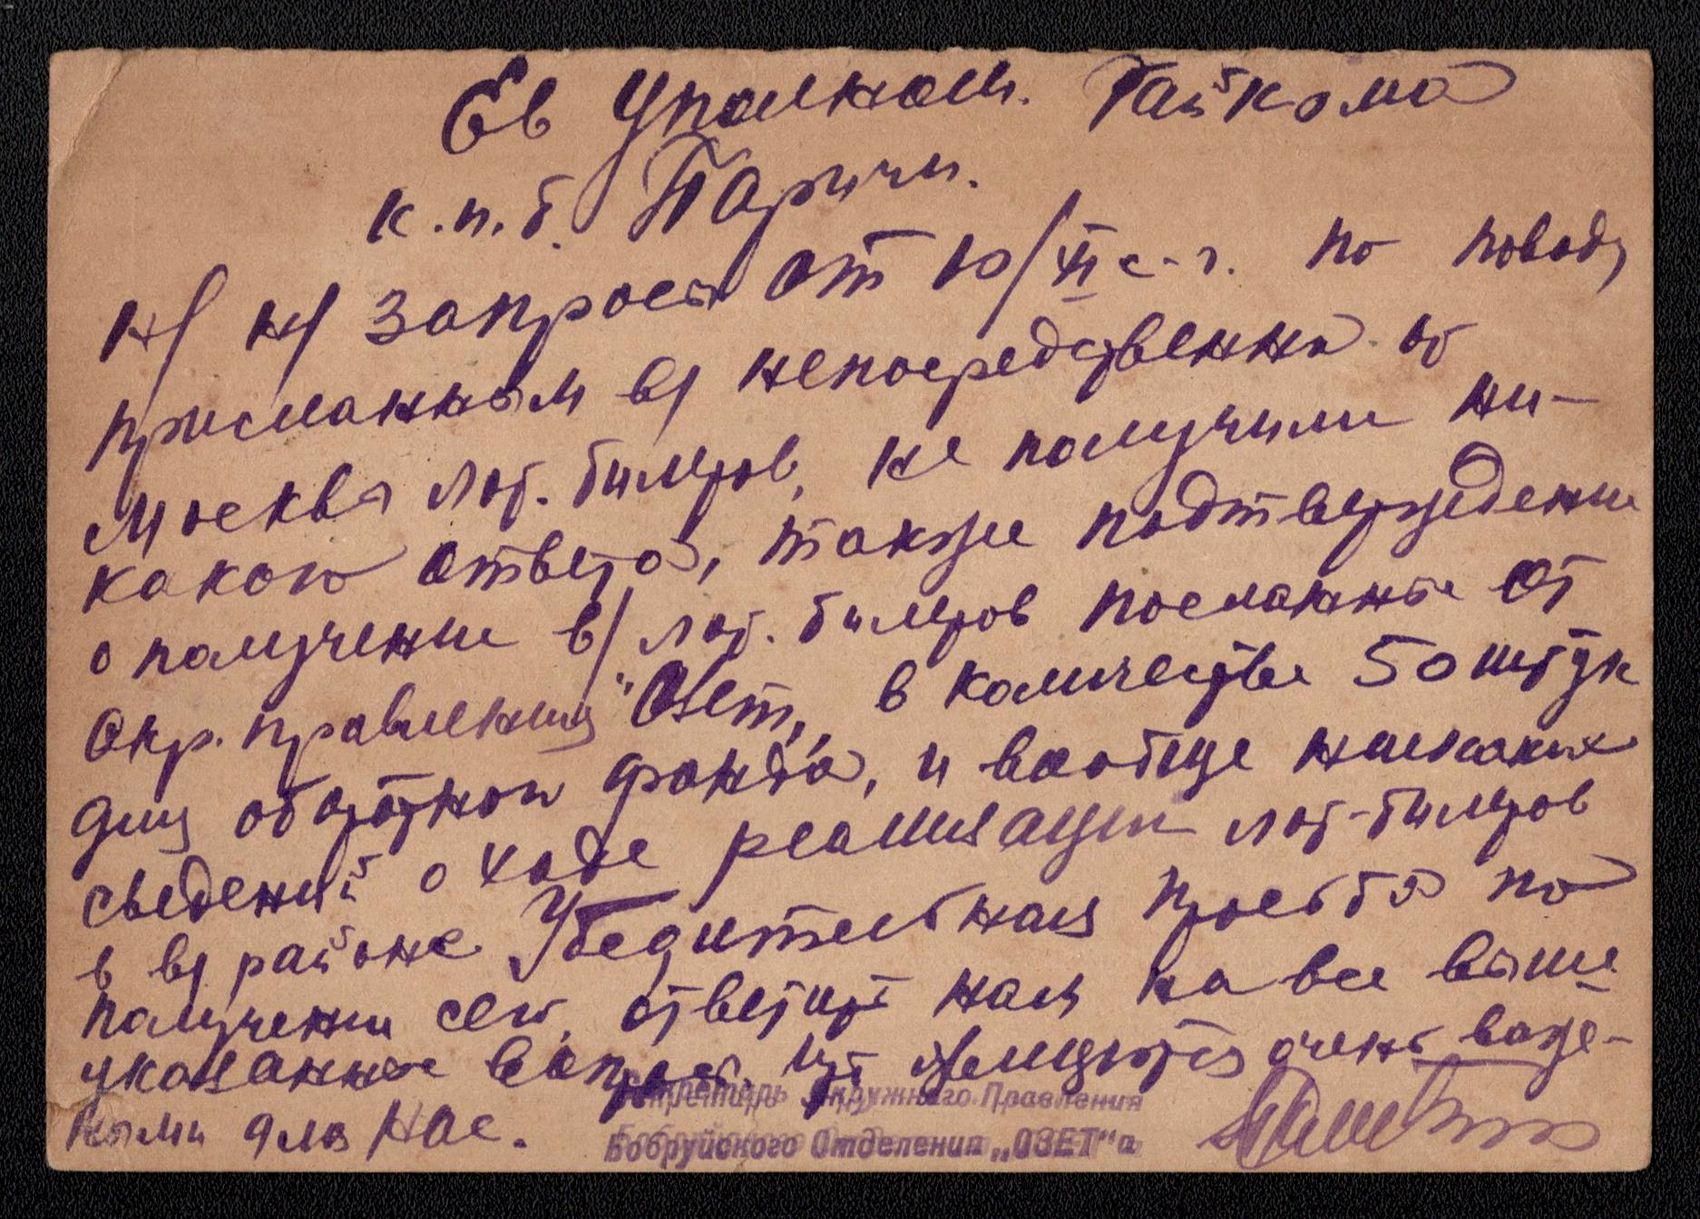 Ев Уполном. Райкома
к.п.б. Паричи.
н/ н/ запросы от 10/XI с-г. по поводу
присланным в/ непосредственно из
Москвы лот. билетов, не получили ни-
какого ответа, также подтверждение
о получение в/ лот. билетов посланные от
Окр. правления "Озет" в количестве 50 штук
для оборотного фонда, и вообще никаких
сведений о ходе реализации лот-билетов
в в/ районе Убедительная просьба по
получении сего, ответить нам на все выше
указанные вопросы очень важ-
ными для нас.
Секретарь Окружного Правления
Бобруйского Отделения „ОЗЕТ“а